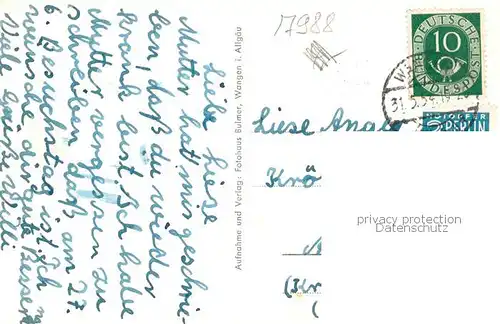 Liebe Liese
Mutter hat mir geschrie-
ben, daß du wieder
krank bist. Ich habe
Mutter vergessen zu
schreiben daß am 27.
6. Besuchstag ist. Ich
wünsche dir gute Besserung
Viele Grüße Willi
Aufnahme und Verlag: Fotohaus Bulmer, Wangen i. Allgäu
17988
DEUTSCHE
BUNDESPOST
10
NOTOPFER
BERLIN
Liese
Krö
privacy protection
Datenschutz
(Kr
(